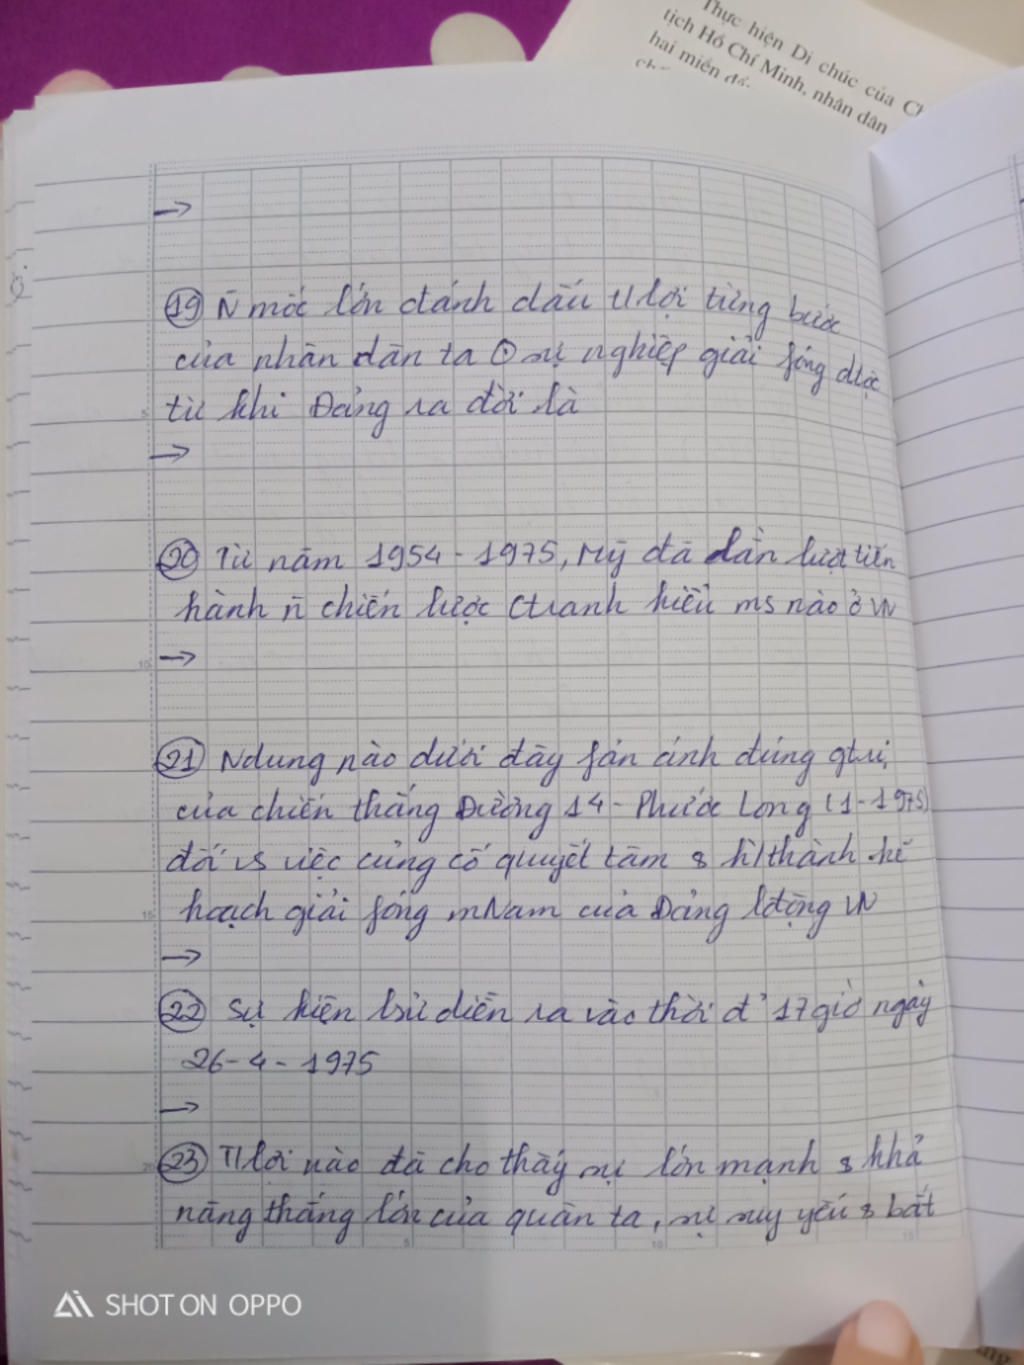 Thực hiện Di chúc của Ch
tịch Hồ Chí Minh, nhân dân
hai miền
→
19 N̄ mốc lớn đánh dấu t/lợi từng bước
của nhân dân ta sự nghiệp giải fóng dtộc
từ khi Đảng ra đời là
→
20 Từ năm 1954 - 1975, Mỹ đã lần lượt tiến
hành n̄ chiến lược Ctranh kiểu ms nào ở VN
→
21 Ndung nào dưới đây fản ánh đúng gtrị
của chiến thắng Đường 14 - Phước Long (1-1975)
đối vs việc củng cố quyết tâm & h/thành kế
hoạch giải fóng mNam của Đảng lđộng VN
→
22 Sự kiện lsử diễn ra vào thời đ' 17 giờ ngày
26 - 4 - 1975
→
23 T/lợi nào đã cho thấy sự lớn mạnh & khả
năng thắng lớn của quân ta, sự suy yếu & bất
SHOT ON OPPO
5
10
15
20
5
10
15